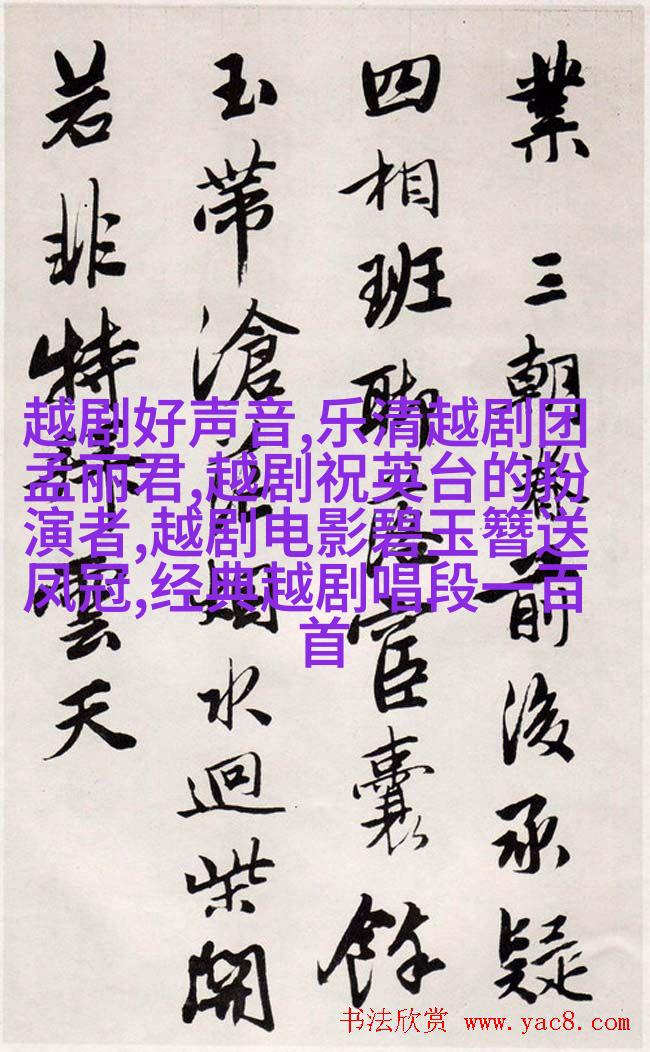 業 三朝前後丞疑
四相班聯宦囊餘
玉帶滄烟水迴柴關
若非特雲天
越剧好声音,乐清越剧团
孟丽君,越剧祝英台的扮
演者,越剧电影碧玉簪送
凤冠,经典越剧唱段一百
首
书法欣赏 www.yac8.com